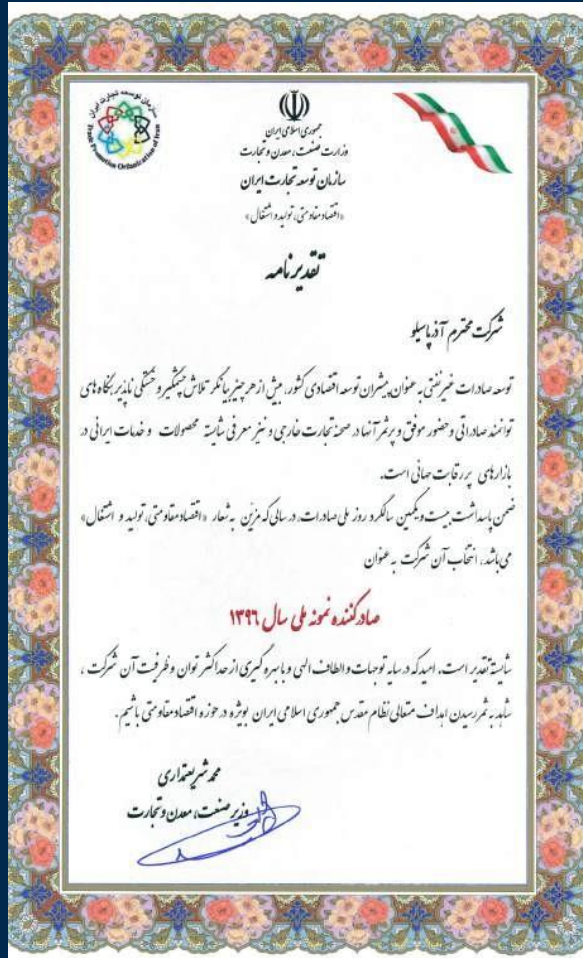 سازمان توسعه تجارت ایران
Trade Promotion Organization of Iran
جمهوری اسلامی ایران
وزارت صنعت، معدن و تجارت
سازمان توسعه تجارت ایران
«اقتصاد مقاومتی، تولید و اشتغال»
تقدیرنامه
شرکت محترم آذر پاسیلو
توسعه صادرات غیرنفتی به عنوان پیشران توسعه اقتصادی کشور، بیش از هر چیز بیانگر تلاش چشمگیر و خستگی ناپذیر بنگاه های
توانمند صادراتی و حضور موفق و پرثمر آنها در صحنه تجارت خارجی و نیز معرفی شایسته محصولات و خدمات ایرانی در
بازارهای پر رقابت جهانی است.
ضمن پاسداشت بیست و یکمین سالگرد روز ملی صادرات، در سالی که مزین به شعار «اقتصاد مقاومتی، تولید و اشتغال»
می باشد، انتخاب آن شرکت به عنوان
صادرکننده نمونه ملی سال ۱۳۹۶
شایسته تقدیر است، امید که در سایه توجهات و الطاف الهی و با بهره گیری از حداکثر توان و ظرفیت آن شرکت،
شاهد به ثمر رسیدن اهداف متعالی نظام مقدس جمهوری اسلامی ایران بویژه در حوزه اقتصاد مقاومتی باشیم.
محمد شریعتمداری
وزیر صنعت، معدن و تجارت